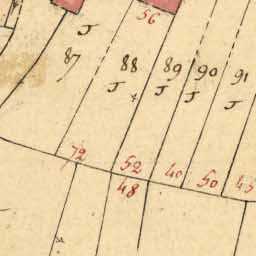 56
J
87 88 89 90 91
J J J J
72 52 40 50 45
48